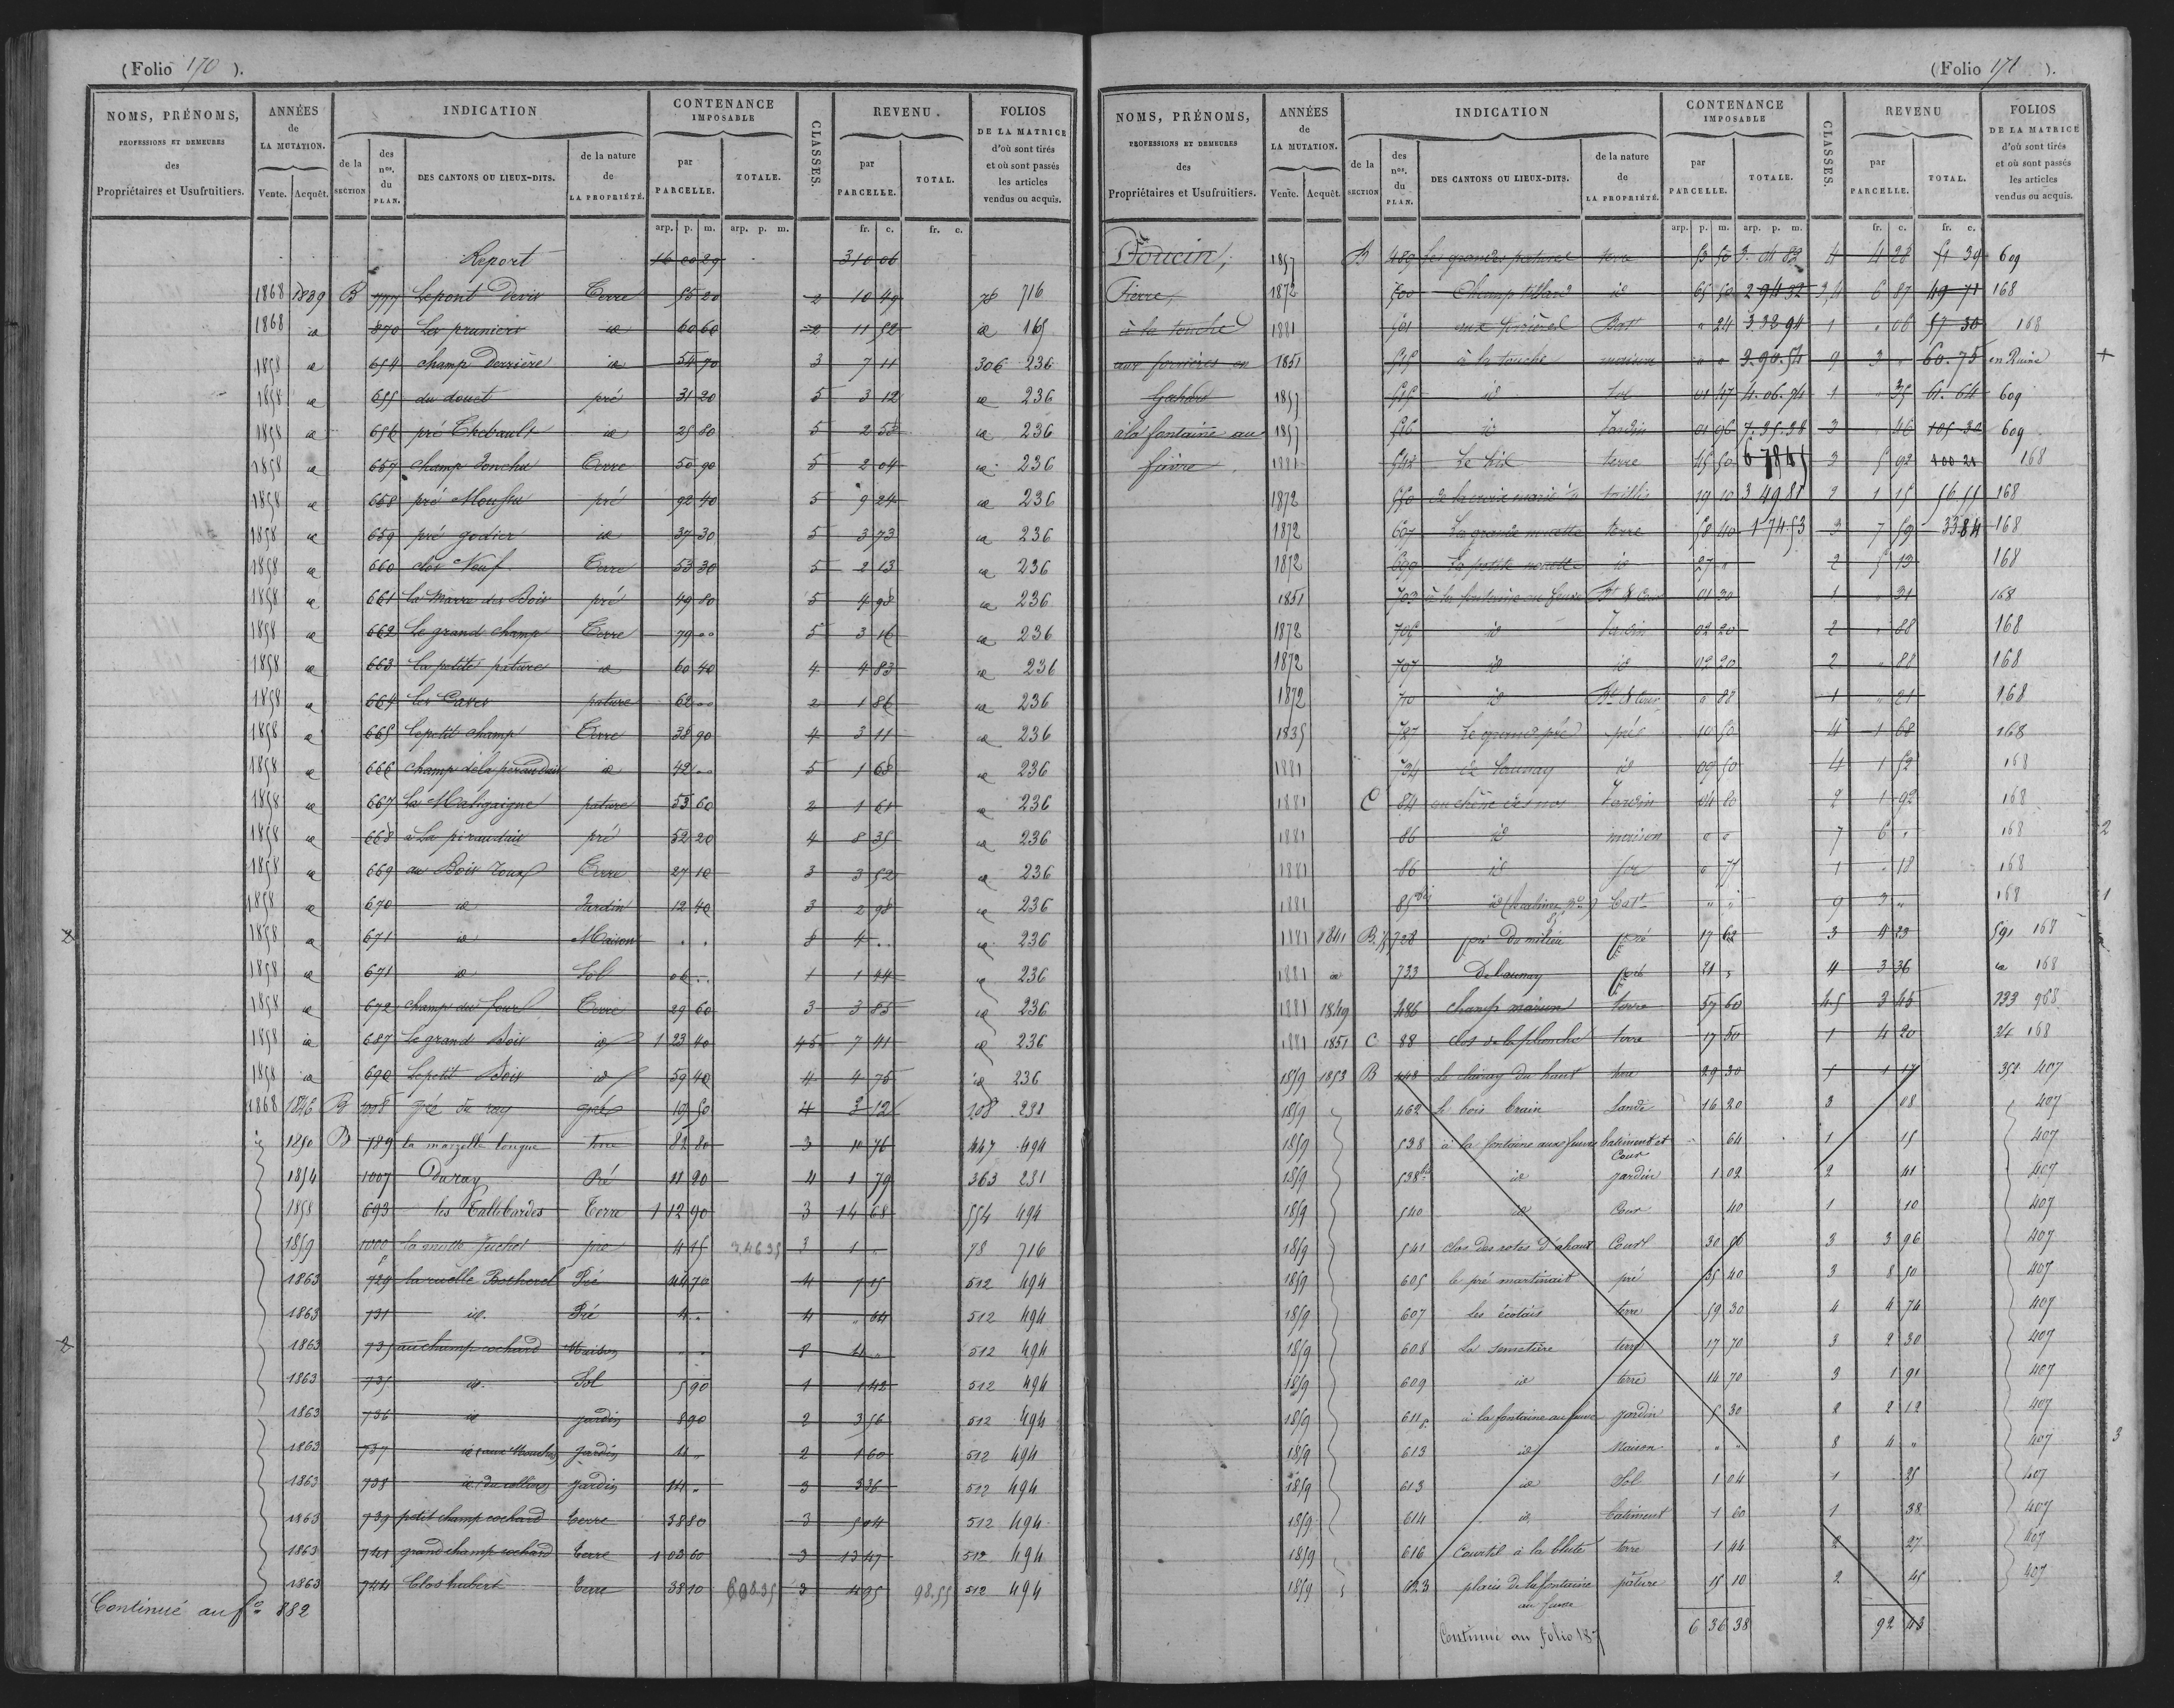 (Folio 170 ).
NOMS, PRÉNOMS, PROFESSIONS ET DEMEURES des Propriétaires et Usufruitiers.
ANNÉES de LA MUTATION. Vente. Acquêt.
INDICATION de la SECTION des nos. du PLAN. DES CANTONS OU LIEUX-DITS. de la nature de LA PROPRIÉTÉ.
CONTENANCE IMPOSABLE par PARCELLE. TOTALE.
CLASSES.
REVENU. par PARCELLE. TOTAL.
FOLIOS DE LA MATRICE d'où sont tirés et où sont passés les articles vendus ou acquis.
arp. p. m. arp. p. m. fr. c. fr. c.
Report 16 00 29 310 06
1868 1839 B 777 Le pont Devis Terre 55 20 2 10 49 78 716
1868 id 870 Les pruniers id 60 60 2 11 52 id 165
1858 id 654 champ Derrière id 54 70 3 7 11 306 236
1858 id 655 du douet pré 31 20 5 3 12 id 236
1858 id 656 pré Thebault id 25 80 5 2 58 id 236
1858 id 657 champ Jonchu Terre 50 90 5 2 04 id 236
1858 id 658 pré Moussu pré 92 40 5 9 24 id 236
1858 id 659 pré godier id 37 30 5 3 73 id 236
1858 id 660 clos Neuf Terre 53 30 5 2 13 id 236
1858 id 661 la Marre des Bois pré 49 80 5 4 98 id 236
1858 id 662 Le grand champ Terre 79 " " 5 3 16 id 236
1858 id 663 la petite pature id 60 40 4 4 83 id 236
1858 id 664 les Caves pature 62 " " 2 1 86 id 236
1858 id 665 Le petit champ Terre 38 90 4 3 11 id 236
1858 id 666 champ de la peraudais id 42 " " 5 1 68 id 236
1858 id 667 La Maligaigne pature 53 60 2 1 61 id 236
1858 id 668 à La piraudais pré 52 20 4 8 35 id 236
1858 id 669 au Bois roux Terre 27 10 3 3 52 id 236
1858 id 670 id Jardin 12 40 3 2 98 id 236
1858 id 671 id Maison " " 8 4 " " id 236
1858 id 671 id Sol 06 " " 1 1 44 id 236
1858 id 672 champ du four Terre 29 60 3 3 85 id 236
1858 id 687 Le grand Bois id 1 23 40 45 7 41 id 236
1858 id 690 Le petit Bois id 59 40 4 4 75 id 236
1868 1846 B 1008 pré du ray pré 19 50 4 3 12 108 231
1850 B 789 la mazelle longue terre 82 80 3 10 76 447 494
1854 1007 Du ray Pré 11 20 4 1 79 363 231
1858 693 les Tallebardes Terre 1 12 90 3 14 68 554 494
1859 1000 la motte Juchet pré 4 15 24635 3 1 " 78 716
1863 729 la ruelle Bochorel Pré 44 70 4 7 15 512 494
1863 731 id. Pré 4 " 4 " 64 512 494
1863 735 au champ cochard Maison " " 8 4 " 512 494
1863 735 id. Sol 5 90 1 1 42 512 494
1863 736 id jardin 8 90 2 3 56 512 494
1863 737 id (aux Mouches) jardin 4 " 2 1 60 512 494
1863 738 id (du cellier) jardin 14 " 3 3 36 512 494
1863 739 petit champ cochard terre 38 80 3 5 04 512 494
1863 741 grand champ cochard terre 1 03 60 3 13 47 512 494
1863 744 Clos hubert terre 38 10 69835 3 4 95 98.55 512 494
Continué au fo 882
(Folio 171 ).
NOMS, PRÉNOMS, PROFESSIONS ET DEMEURES des Propriétaires et Usufruitiers.
ANNÉES de LA MUTATION. Vente. Acquêt.
INDICATION de la SECTION des nos. du PLAN. DES CANTONS OU LIEUX-DITS. de la nature de LA PROPRIÉTÉ.
CONTENANCE IMPOSABLE par PARCELLE. TOTALE.
CLASSES.
REVENU par PARCELLE. TOTAL.
FOLIOS DE LA MATRICE d'où sont tirés et où sont passés les articles vendus ou acquis.
arp. p. m. arp. p. m. fr. c. fr. c.
Doucin, 1857 B 489 les grandes patures terre 53 50 3. 04 82 4 4 28 51 39 609
Pierre, 1872 500 Champ tillard id 65 50 2 94 32 3,4 6 87 49 71 168
à la touche 1881 501 aux forières Bat " 24 3 32 94 1 " 06 57 30 168
aux forières en 1851 515 à la touche maison " " 3. 90. 54 9 3 " 60. 75 en Ruine +
Gahard 1857 515 id Sol 01 47 4. 06. 74 1 " 35 61. 64 609
à la fontaine au 1857 516 id Jardin 01 96 7. 35. 38 3 " 46 105 30 609
faivre 1881 542 Le Lis terre 45 50 6 78 45 3 5 92 100 21 168
1872 550 taillis 19 10 3 49 81 2 1 15 56 55 168
1872 697 La grande nouette terre 58 40 1 74 53 3 7 59 33 84 168
1872 699 La petite nouette id 27 " 2 5 13 168
1851 703 à la fontaine au feuvre Bt & Cour 01 30 1 " 31 168
1872 706 id Jardin 02 20 2 " 88 168
1872 707 id id 02 20 2 " 88 168
1872 710 id Bt & Cour " 88 1 " 21 168
1835 727 Le grand pré pré 10 50 4 1 68 168
1881 734 de launay id 09 50 4 1 52 168
1881 C 84 au chêne des nos Jardin 04 80 2 1 92 168
1881 86 id maison " " 7 6 " 168 2
1881 86 id sol " 77 1 " 18 168
1881 85 bis id Bat " " 9 3 " 168 1
1881 1841 B 728 pré Du milieu pré 17 62 3 4 23 591 168
1881 id 733 De launay pré 21 " 4 3 36 id 168
1881 1849 486 champ marion terre 57 60 4.5 3 45 193 968
1881 1851 C 88 clos de la planche terre 17 50 1 4 20 24 168
1859 1853 B 448 Le chenay du haut terre 29 30 5 1 17 352 407
1859 462 Le bois brain Lande 16 20 3 08 407
1859 538 à la fontaine aux feuvre batiment et Cour 64 1 15 407
1859 538 bis id jardin 1 02 2 41 407
1859 540 id Cour 40 1 10 407
1859 541 clos des rotes d'ahaut Court 30 06 3 3 96 407
1859 605 le pré martinait pré 35 40 3 8 50 407
1859 607 Les écotais terre 59 30 4 4 74 407
1859 608 La semetière terre 17 70 3 2 30 407
1859 609 id terre 14 70 3 1 91 407
1859 611 à la fontaine au feuvre jardin 5 30 2 2 12 407
1859 613 id Maison " " 8 4 " 407 3
1859 613 id Sol 1 04 1 25 407
1859 614 id batiment 1 60 1 38 407
1859 616 Courtil à la blute terre 1 44 2 27 407
1859 623 placis de la fontaine au feuvre pâture 15 10 2 45 407
Continué au folio 187 6 36 38 92 43